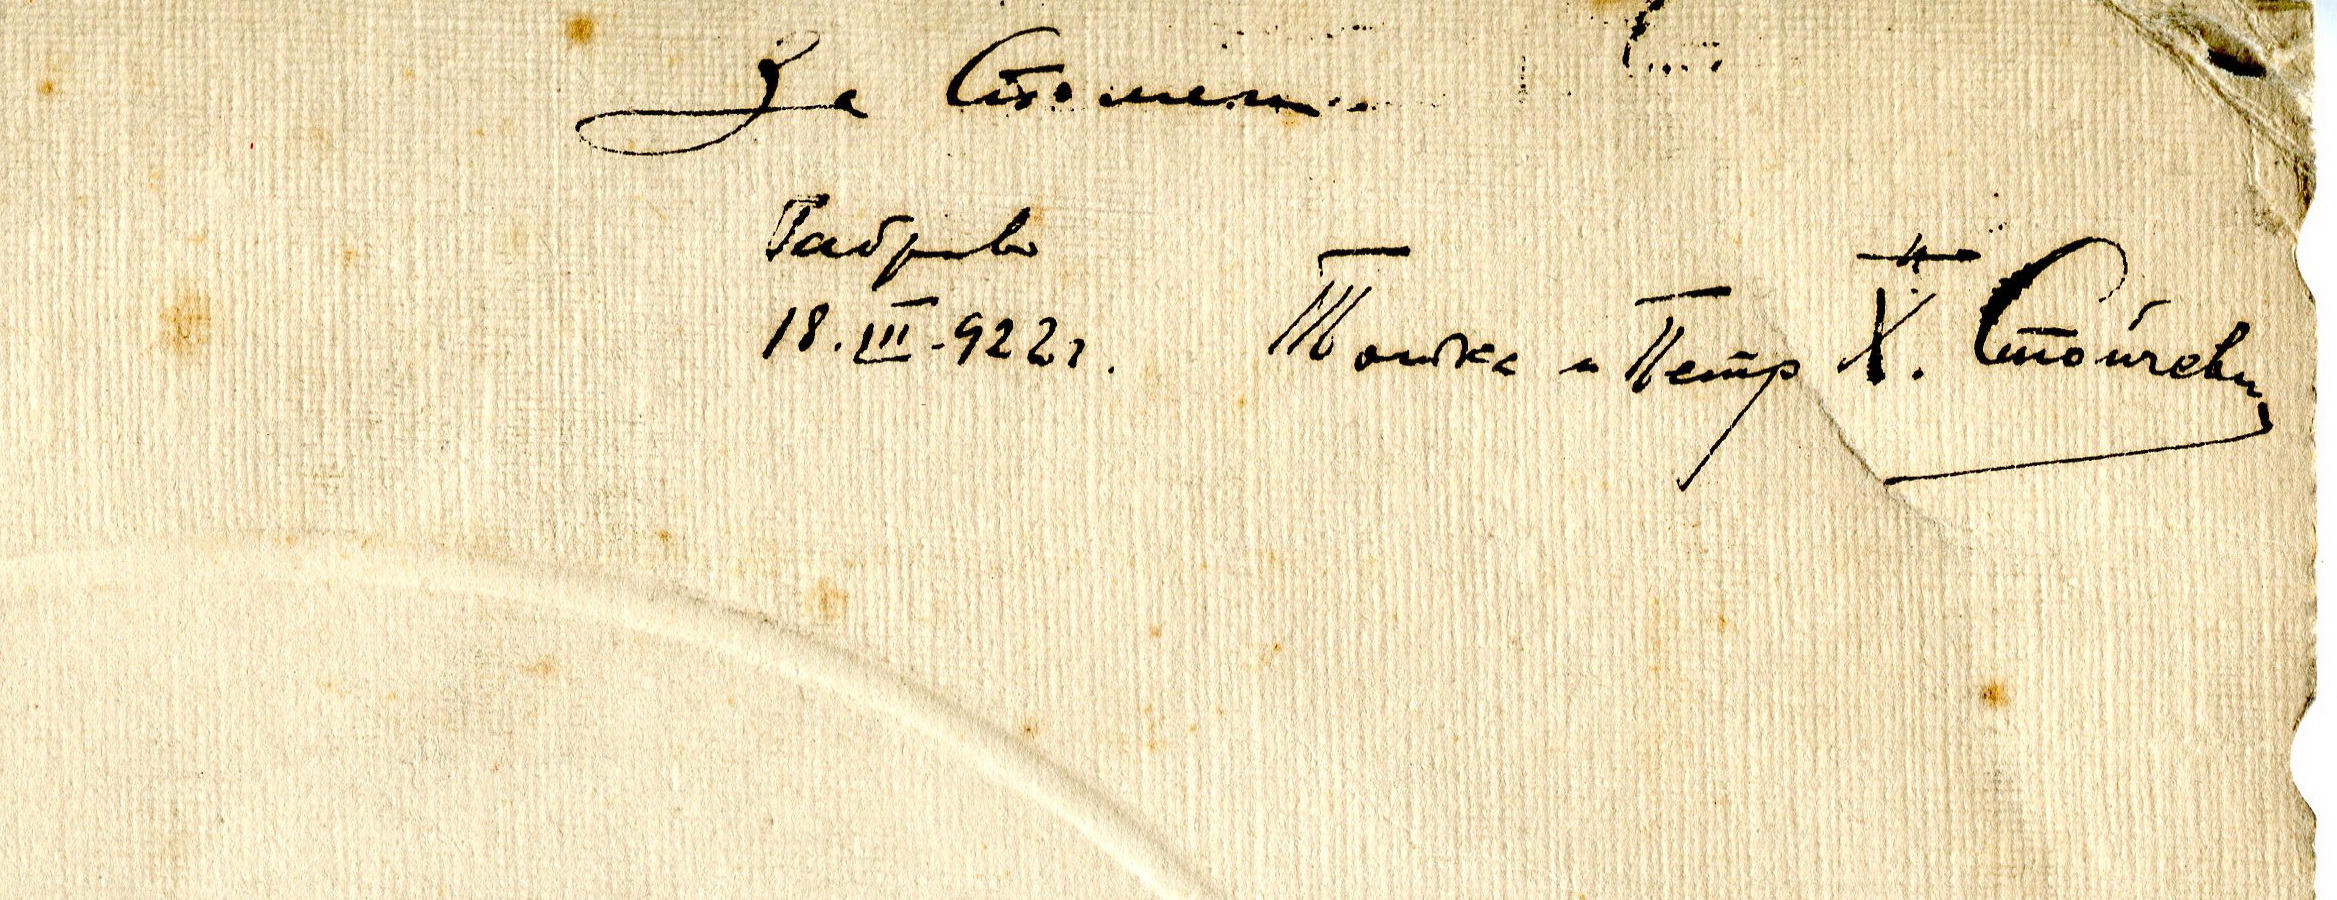 За Спомен
Габрово
18.III.922г.
Тошка и Петр Х. Стойчеви